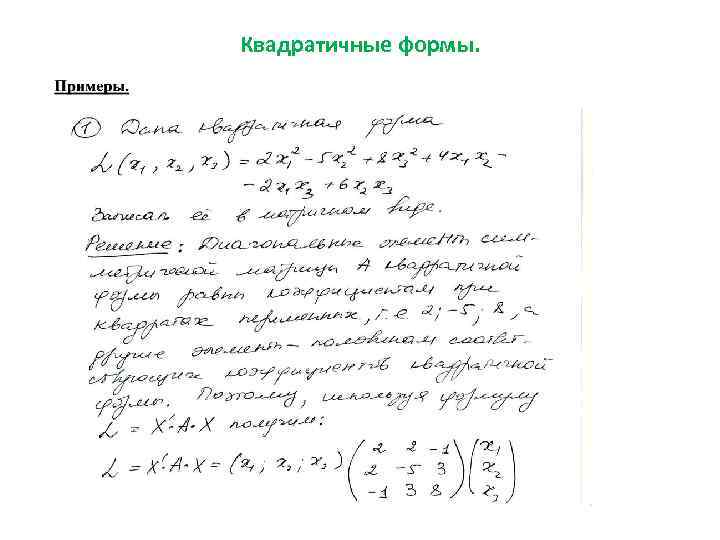 Квадратичные формы.
Примеры.
① Дана квадратичная форма
L(x₁, x₂, x₃) = 2x₁² - 5x₂² + 8x₃² + 4x₁x₂ -
- 2x₁x₃ + 6x₂x₃
Записать её в матричном виде.
Решение: Диагональные элементы сим-
метрической матрицы A квадратичной
формы равны коэффициентам при
квадратах переменных, т.е 2; -5; 8, а
другие элементы - половинам соответ-
ствующих коэффициентов квадратичной
формы. Поэтому, используя формулу
L = X'·A·X получим:
L = X'·A·X = (x₁; x₂; x₃) (2 2 -1) (x₁)
(2 -5 3) (x₂)
(-1 3 8) (x₃)